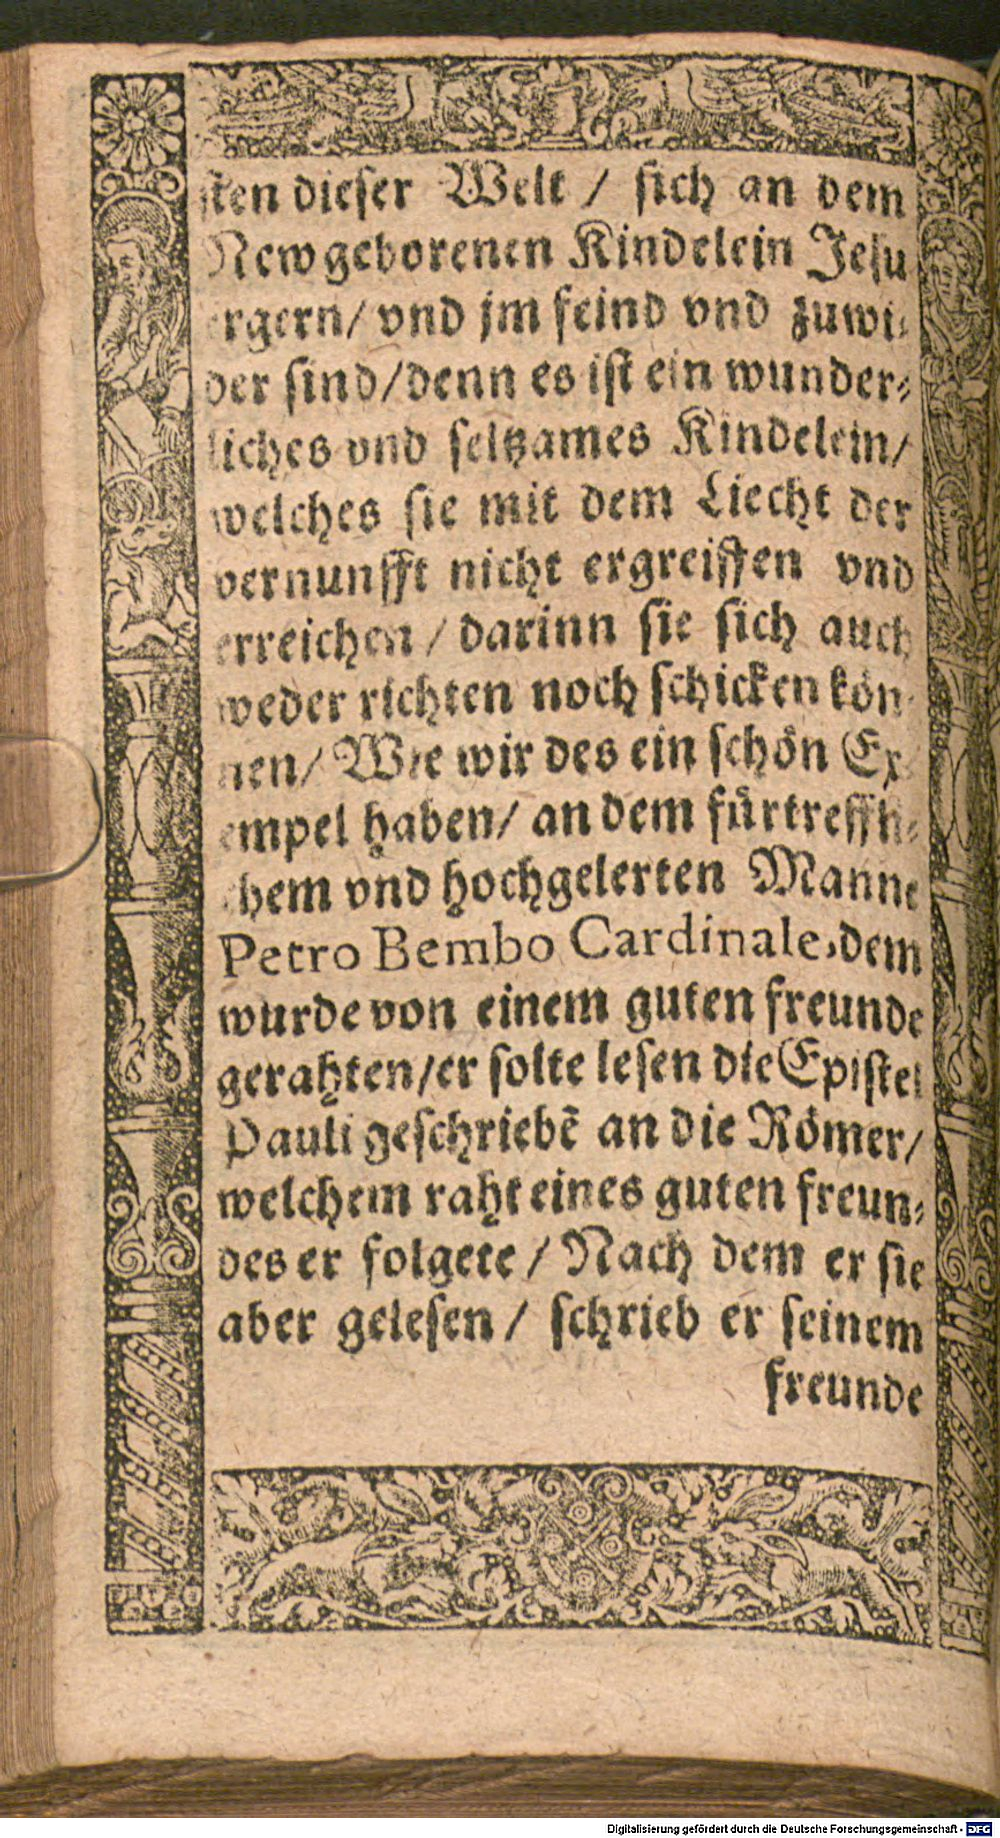 sten dieser Welt / sich an dem
Newgeborenen Kindelein Jesu
ergern/ vnd jm feind vnd zuwi⸗
der sind/denn es ist ein wunder⸗
liches vnd seltzames Kindelein/
welches sie mit dem Liecht der
vernunfft nicht ergreiffen vnd
erreichen / darinn sie sich auch
weder richten noch schicken kön⸗
nen/ Wie wir des ein schön Ex⸗
empel haben/ an dem fürtreffli⸗
chem vnd hochgelerten Manne
Petro Bembo Cardinale, dem
wurde von einem guten freunde
gerahten/er solte lesen die Epistel
Pauli geschriebē an die Römer/
welchem raht eines guten freun⸗
des er folgete / Nach dem er sie
aber gelesen / schrieb er seinem
freunde
Digitalisierung gefördert durch die Deutsche Forschungsgemeinschaft - DFG